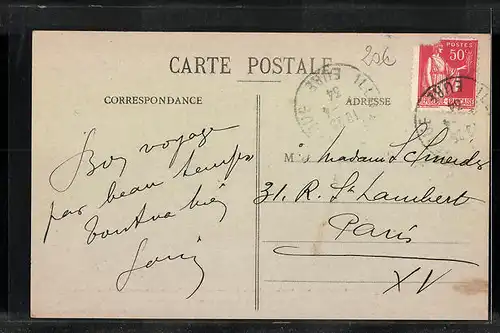 206
CARTE POSTALE
CORRESPONDANCE
ADRESSE
POSTES
50c
EURE
EURE
Bon voyage
par beau temps
tout va bien
M Madame Schneider
31. R. St Lambert
Paris
XV